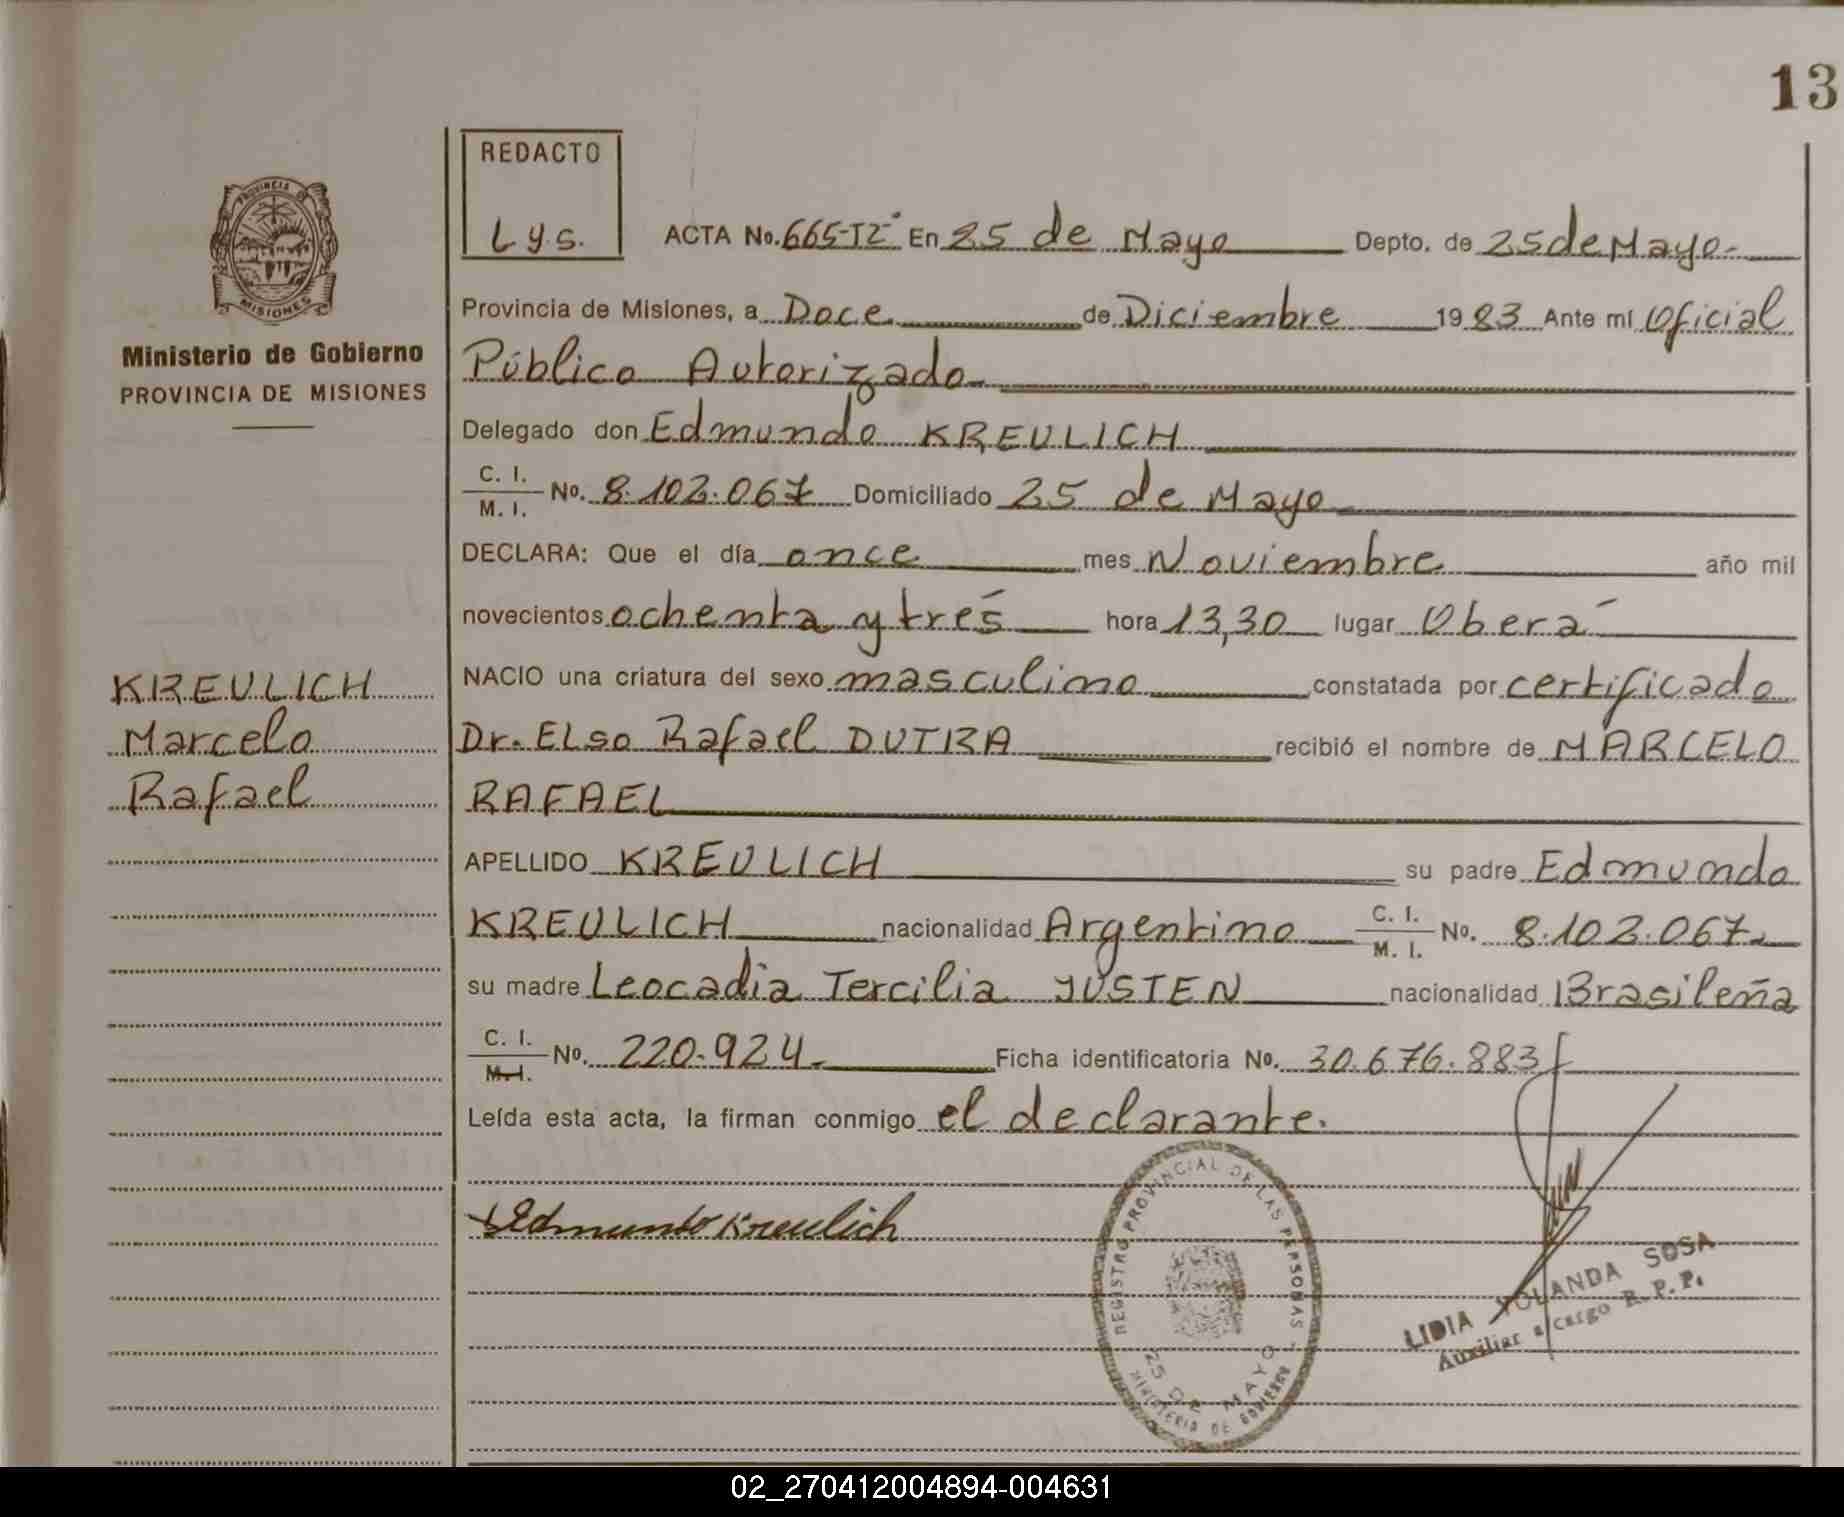 13
REDACTO
Lys.
PROVINCIA
MISIONES
Ministerio de Gobierno
PROVINCIA DE MISIONES
ACTA No. 665-T2° En 25 de Mayo Depto. de 25 de Mayo.
Provincia de Misiones, a Doce de Diciembre 1983 Ante mí Oficial
Público Autorizado
Delegado don Edmundo KREULICH
C. I.
M. I. No. 8.102.067 Domiciliado 25 de Mayo
DECLARA: Que el día once mes Noviembre año mil
novecientos ochenta y tres hora 13,30 lugar Oberá
NACIO una criatura del sexo masculino constatada por certificado
Dr. ELso Rafael DUTRA recibió el nombre de MARCELO
RAFAEL
KREULICH
Marcelo
Rafael
APELLIDO KREULICH su padre Edmundo
KREULICH nacionalidad Argentino C. I. M. I. No. 8.102.067.
su madre Leocadia Tercilia YUSTEN nacionalidad Brasileña
C. I.
M. I. No. 220.924. Ficha identificatoria No. 30.676.883
Leída esta acta, la firman conmigo el declarante.
Edmundo Kreulich
REGISTRO PROVINCIAL DE LAS PERSONAS
25 DE MAYO
MINISTERIO DE GOBIERNO
LIDIA YOLANDA SOSA
Auxiliar a cargo R. P. P.
02_270412004894-004631